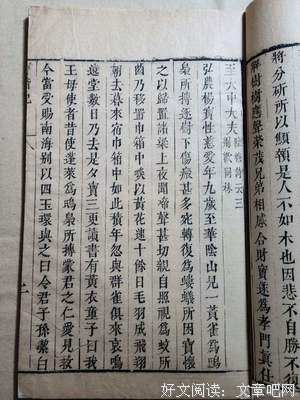 將分斫所以顦顇是人不如木也因悲不自勝不復
解樹樹應聲榮茂兄弟相感合財寶遂為孝門眞仕
至大中大夫陸機詩云三荊歡同株
弘農楊寶性慈愛年九歲至華陰山見一黃雀為鴟
梟所搏逐樹下傷瘢甚多宛轉復為螻蟻所困寶懷
之以歸置諸梁上夜聞啼聲甚切親自照視為蚊所
嚙乃移置巾箱中啖以黃花逮十餘日毛羽成飛翔
朝去暮來宿巾箱中如此積年忽與群雀俱來哀鳴
遶堂數日乃去是夕寶三更讀書有黃衣童子曰我
王母使者昔使蓬萊為鴟梟所搏蒙君之仁愛見救
今當受賜南海別以四玉環與之曰令君子孫潔白
二
好文阅读：文章吧网